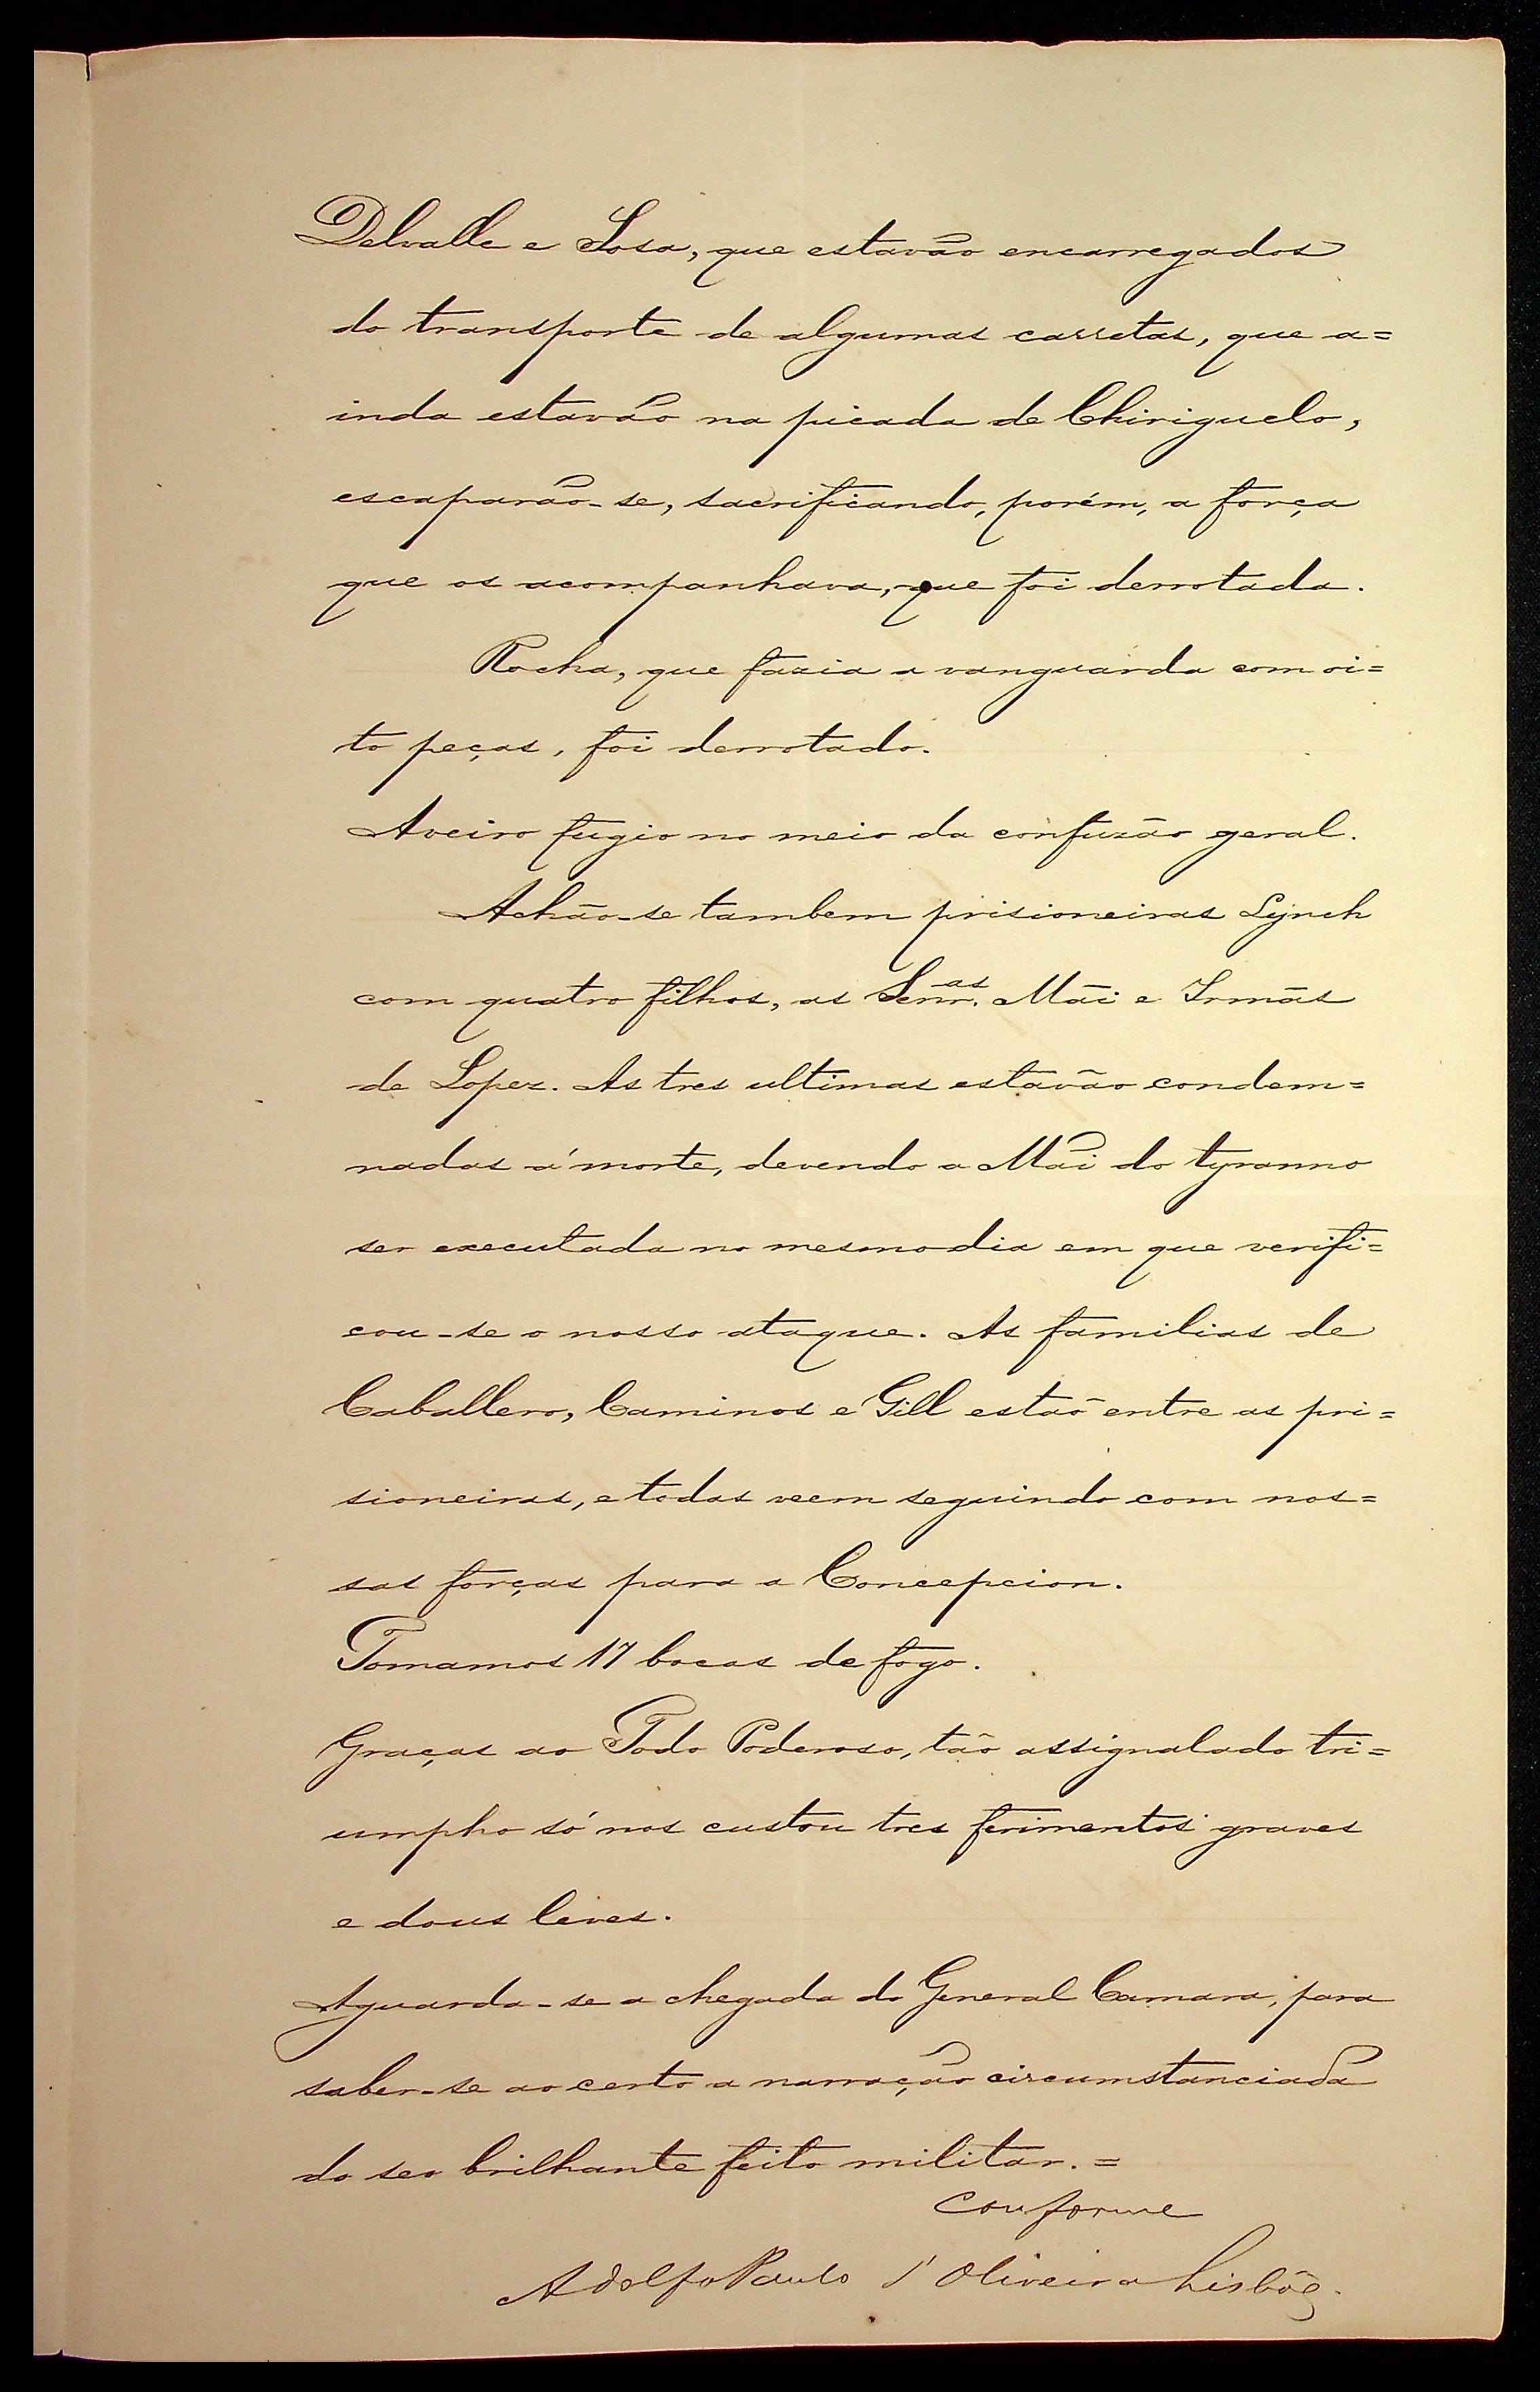 Delvalle e Sosa, que estavão encarregados
do transporte de algumas carretas, que a=
inda estavão na picada de Chiriguelo,
escaparão-se, sacrificando, porém, a força
que os acompanhava, que foi derrotada.
Rocha, que fazia a vanguarda com oi=
to peças, foi derrotado.
Aveiro fugio no meio da confuzão geral.
Achão-se tambem prisioneiras Lynch
com quatro filhos, as Senr.as Mãi e Irmãs
de Lopez. As tres ultimas estavão condem=
nadas á morte, devendo a Mãi do tyranno
ser executada no mesmo dia em que verifi=
cou-se o nosso ataque. As familias de
Caballero, Caminos e Gill estão entre as pri=
sioneiras, e todas veem seguindo com nos=
sas forças para a Concepcion.
Tomamos 17 bocas de fogo.
Graças ao Todo Poderoso, tão assignalado tri=
umpho só nos custou tres ferimentos graves
e dous leves.
Aguarda-se a chegada do General Camara, para
saber-se ao certo a narração circumstanciada
do seo brilhante feito militar. =
Conforme
Adolfo Paulo d'Oliveira Lisbôa.